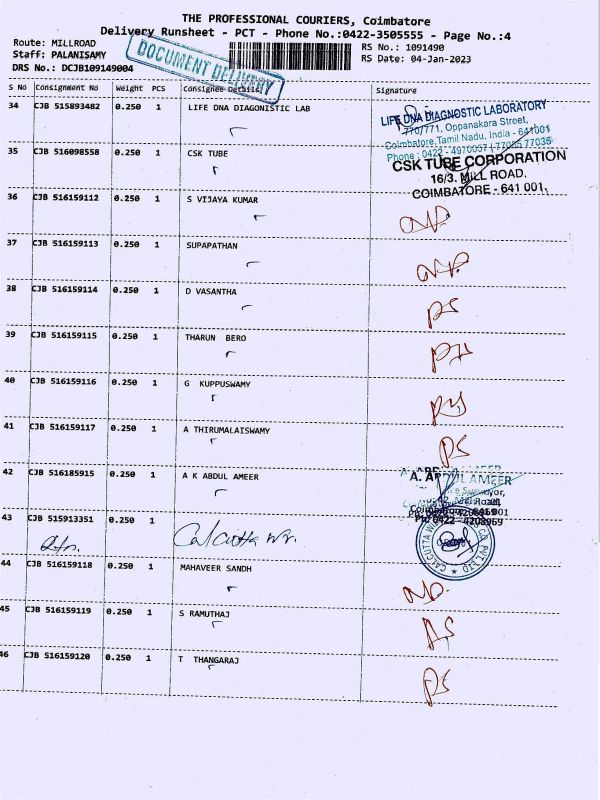 THE PROFESSIONAL COURIERS, Coimbatore
Delivery Runsheet - PCT - Phone No.:0422-3505555 - Page No.:4
Route: MILLROAD
RS No.: 1091490
Staff: PALANISAMY
RS Date: 04-Jan-2023
DRS No.: DCJB109149004
DOCUMENT DELIVERY
S No Consignment No Weight PCS Consignee Details Signature
34 CJB 515893482 0.250 1 LIFE DNA DIAGONISTIC LAB
LIFE DNA DIAGNOSTIC LABORATORY
770/771, Oppanakara Street,
Coimbatore, Tamil Nadu, India - 641001
Phone : 0422 - 4970057 | 77085 77035
35 CJB 516098558 0.250 1 CSK TUBE
CSK TUBE CORPORATION
16/3, MILL ROAD,
COIMBATORE - 641 001.
36 CJB 516159112 0.250 1 S VIJAYA KUMAR
37 CJB 516159113 0.250 1 SUPAPATHAN
38 CJB 516159114 0.250 1 D VASANTHA
39 CJB 516159115 0.250 1 THARUN BERO
40 CJB 516159116 0.250 1 G KUPPUSWAMY
41 CJB 516159117 0.250 1 A THIRUMALAISWAMY
42 CJB 516185915 0.250 1 A K ABDUL AMEER
A. ABDUL AMEER
43 CJB 515913351 0.250 1 Calcutta
44 CJB 516159118 0.250 1 MAHAVEER SANDH
45 CJB 516159119 0.250 1 S RAMUTHAJ
46 CJB 516159120 0.250 1 T THANGARAJ